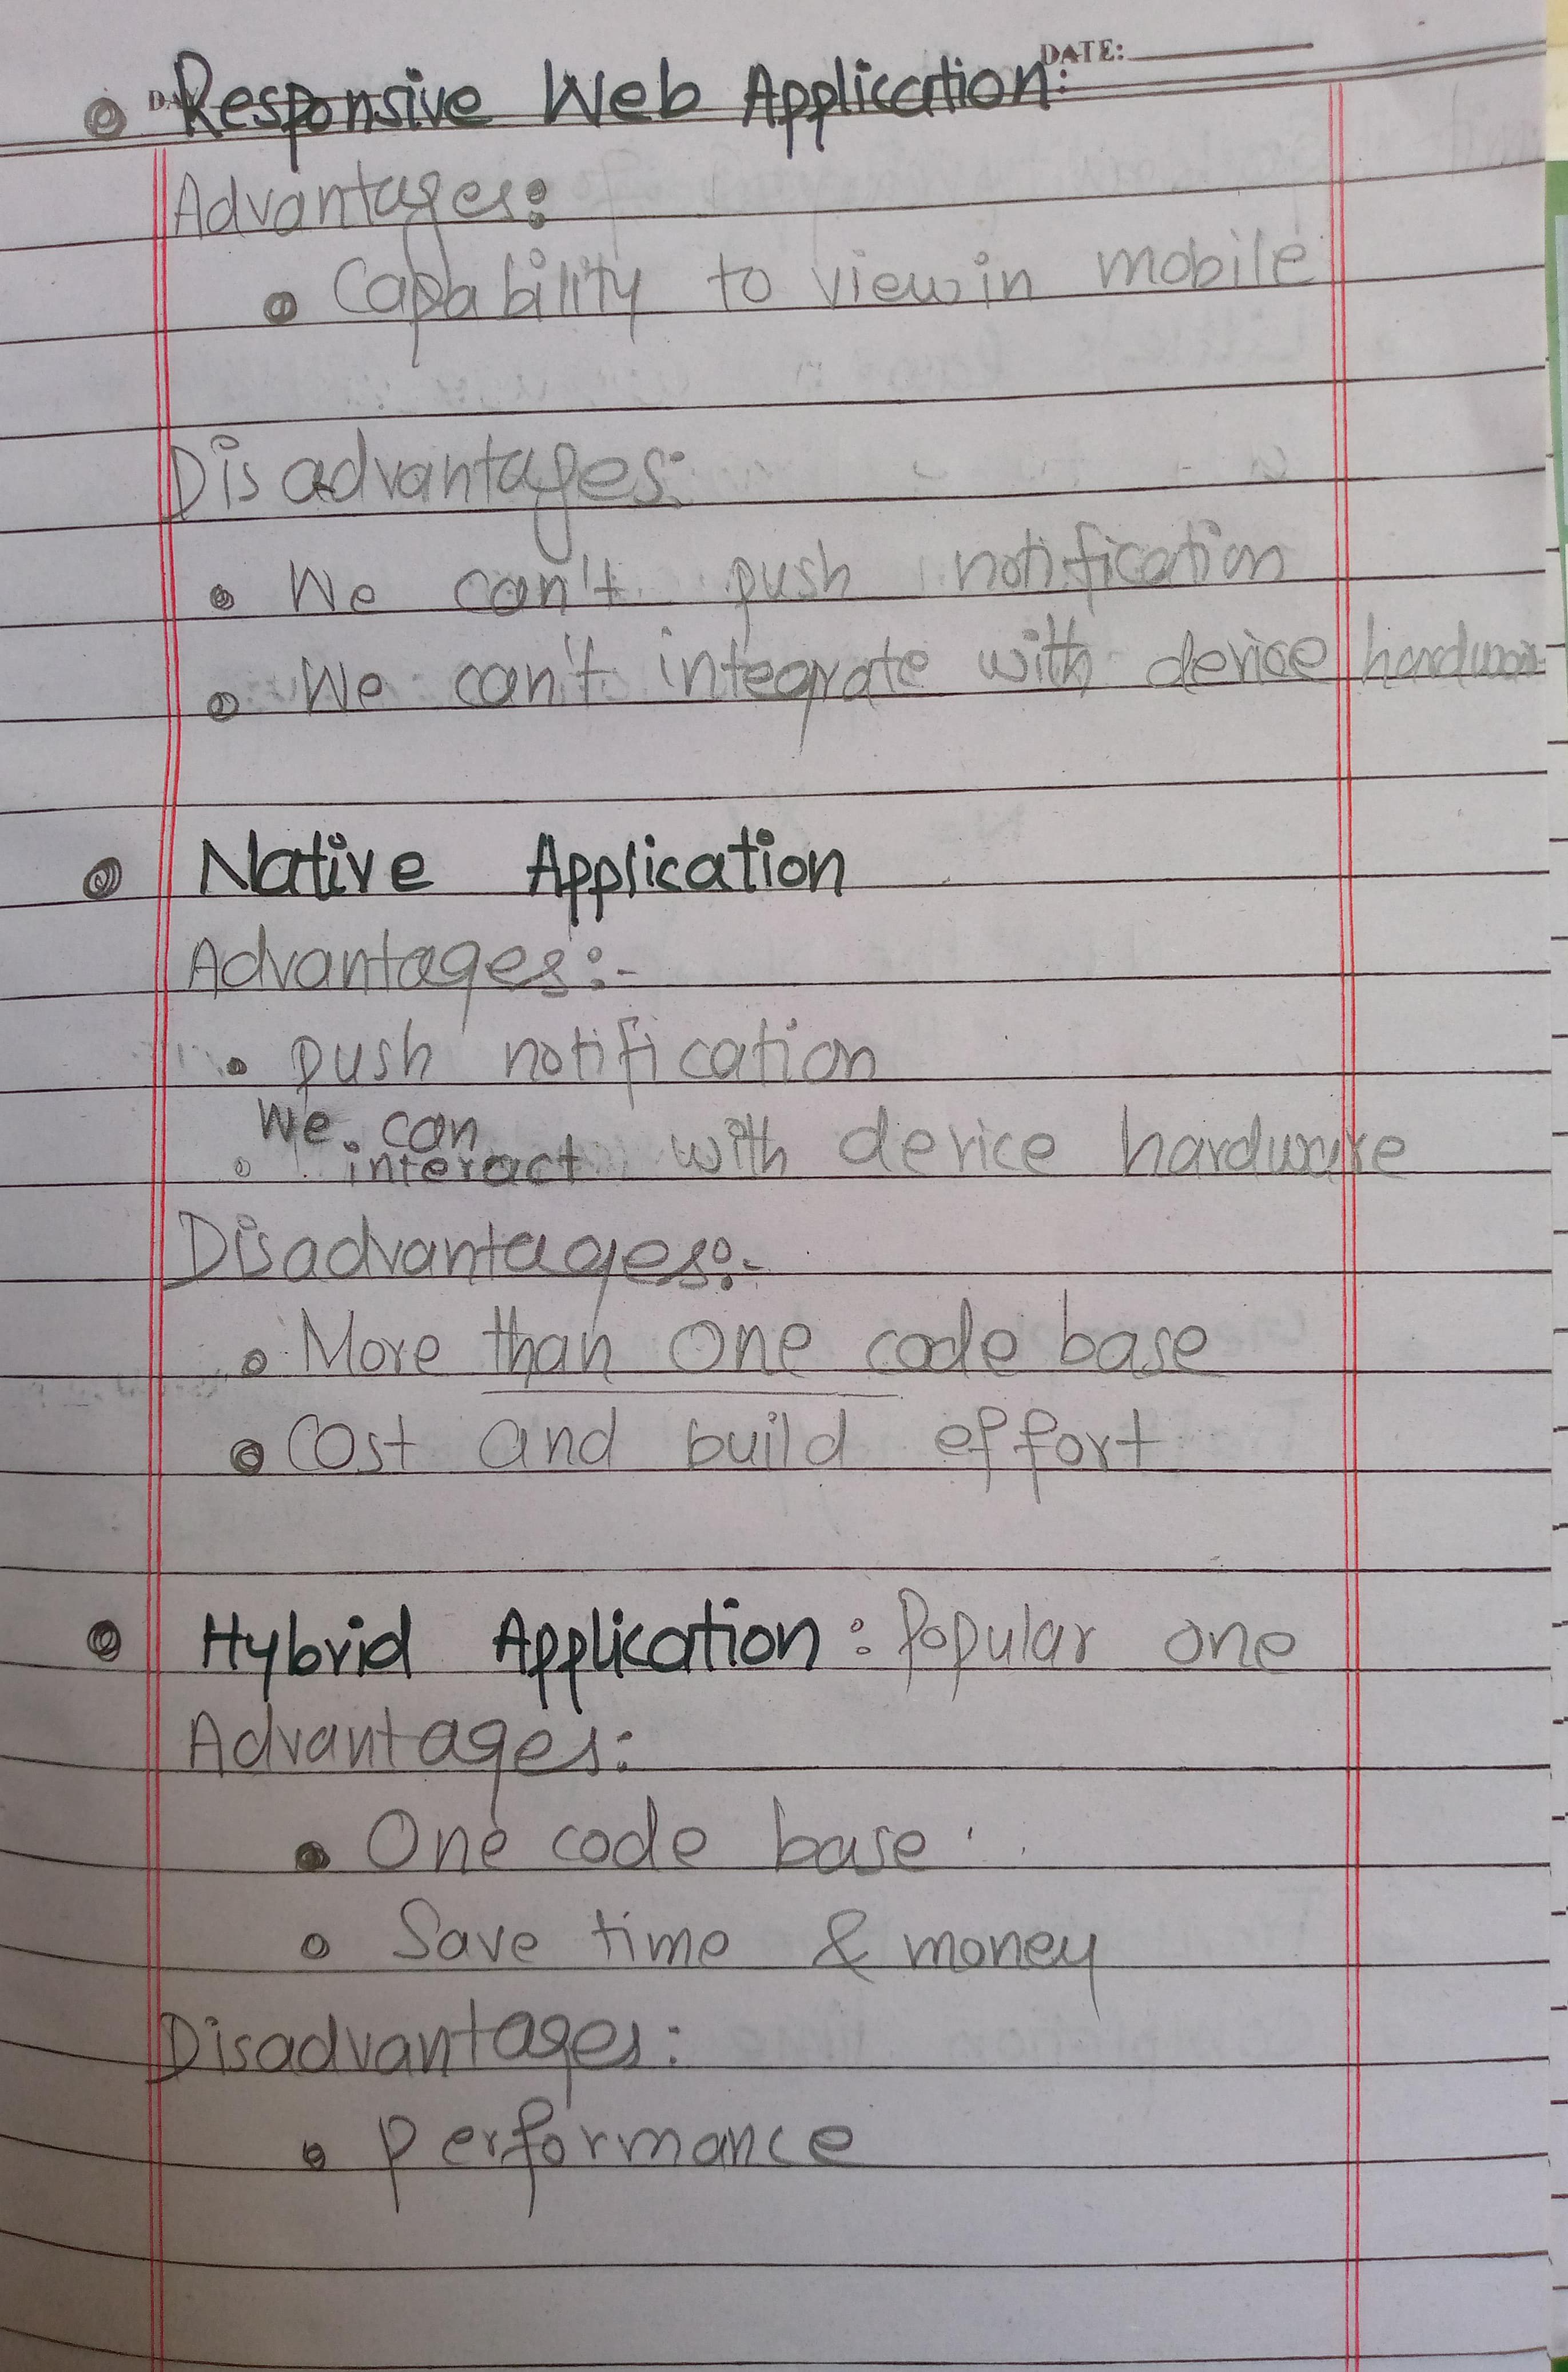 DATE:
• Responsive Web Application:
Advantages:
• Capability to view in mobile
Disadvantages:
• We can't push notification
• We can't integrate with device hardware
• Native Application
Advantages:-
• push notification
We can
• interact with device hardware
Disadvantages:-
• More than one code base
• Cost and build effort
• Hybrid Application: Popular one
Advantages:
• One code base
• Save time & money
Disadvantages:
• Performance